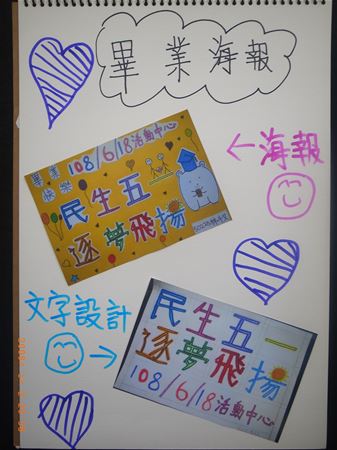 畢業海報
108/6/18活動中心
畢業
快樂
民生五一
逐夢飛揚
←海報
文字設計
→
民生五一
逐夢飛揚
108/6/18活動中心